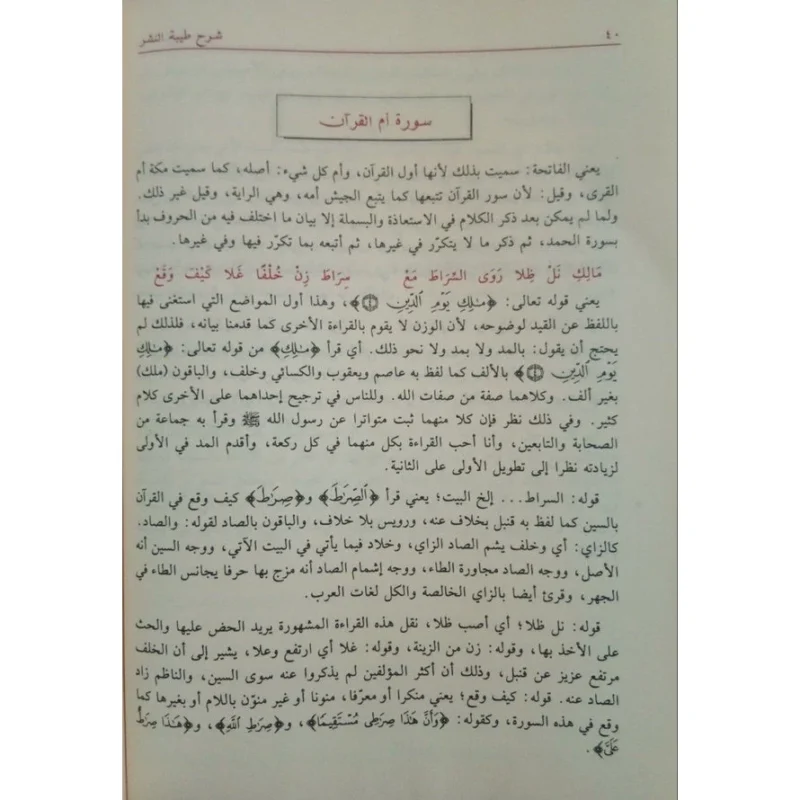 ٤٠ شرح طيبة النشر
سورة أم القرآن
يعني الفاتحة: سميت بذلك لأنها أول القرآن، وأم كل شيء: أصله، كما سميت مكة أم
القرى، وقيل: لأن سور القرآن تتبعها كما يتبع الجيش أمه، وهي الراية، وقيل غير ذلك.
ولما لم يمكن بعد ذكر الكلام في الاستعاذة والبسملة إلا بيان ما اختلف فيه من الحروف بدأ
بسورة الحمد، ثم ذكر ما لا يتكرّر في غيرها، ثم أتبعه بما تكرّر فيها وفي غيرها.
مَالِكِ نَلْ ظِلا رَوَى السِّرَاطَ مَعْ سِرَاطَ زِنْ خُلْفًا غَلا كَيْفَ وَقَعْ
يعني قوله تعالى: ﴿مَـٰلِكِ يَوْمِ ٱلدِّينِ ۝﴾، وهذا أول المواضع التي استغنى فيها
باللفظ عن القيد لوضوحه، لأن الوزن لا يقوم بالقراءة الأخرى كما قدمنا بيانه، فلذلك لم
يحتج أن يقول: بالمد ولا بمد ولا نحو ذلك. أي قرأ ﴿مَـٰلِكِ﴾ من قوله تعالى: ﴿مَـٰلِكِ
يَوْمِ ٱلدِّينِ ۝﴾ بالألف كما لفظ به عاصم ويعقوب والكسائي وخلف، والباقون (ملك)
بغير ألف. وكلاهما صفة من صفات الله. وللناس في ترجيح إحداهما على الأخرى كلام
كثير. وفي ذلك نظر فإن كلا منهما ثبت متواترا عن رسول الله ﷺ وقرأ به جماعة من
الصحابة والتابعين، وأنا أحب القراءة بكل منهما في كل ركعة، وأقدم المد في الأولى
لزيادته نظرا إلى تطويل الأولى على الثانية.
قوله: السراط... إلخ البيت؛ يعني قرأ ﴿ٱلصِّرَٰطَ﴾ و﴿صِرَٰطَ﴾ كيف وقع في القرآن
بالسين كما لفظ به قنبل بخلاف عنه، ورويس بلا خلاف، والباقون بالصاد لقوله: والصاد.
كالزاي: أي وخلف يشم الصاد الزاي، وخلاد فيما يأتي في البيت الآتي، ووجه السين أنه
الأصل، ووجه الصاد مجاورة الطاء، ووجه إشمام الصاد أنه مزج بها حرفا يجانس الطاء في
الجهر، وقرئ أيضا بالزاي الخالصة والكل لغات العرب.
قوله: نل ظلا؛ أي أصب ظلا، نقل هذه القراءة المشهورة يريد الحض عليها والحث
على الأخذ بها، وقوله: زن من الزينة، وقوله: غلا أي ارتفع وعلا، يشير إلى أن الخلف
مرتفع عزيز عن قنبل، وذلك أن أكثر المؤلفين لم يذكروا عنه سوى السين، والناظم زاد
الصاد عنه. قوله: كيف وقع؛ يعني منكرا أو معرّفا، منونا أو غير منوّن باللام أو بغيرها كما
وقع في هذه السورة، وكقوله: ﴿وَأَنَّ هَٰذَا صِرَٰطِى مُسْتَقِيمًا﴾، و﴿صِرَٰطِ ٱللَّهِ﴾، و﴿هَٰذَا صِرَٰطٌ
عَلَىَّ﴾.